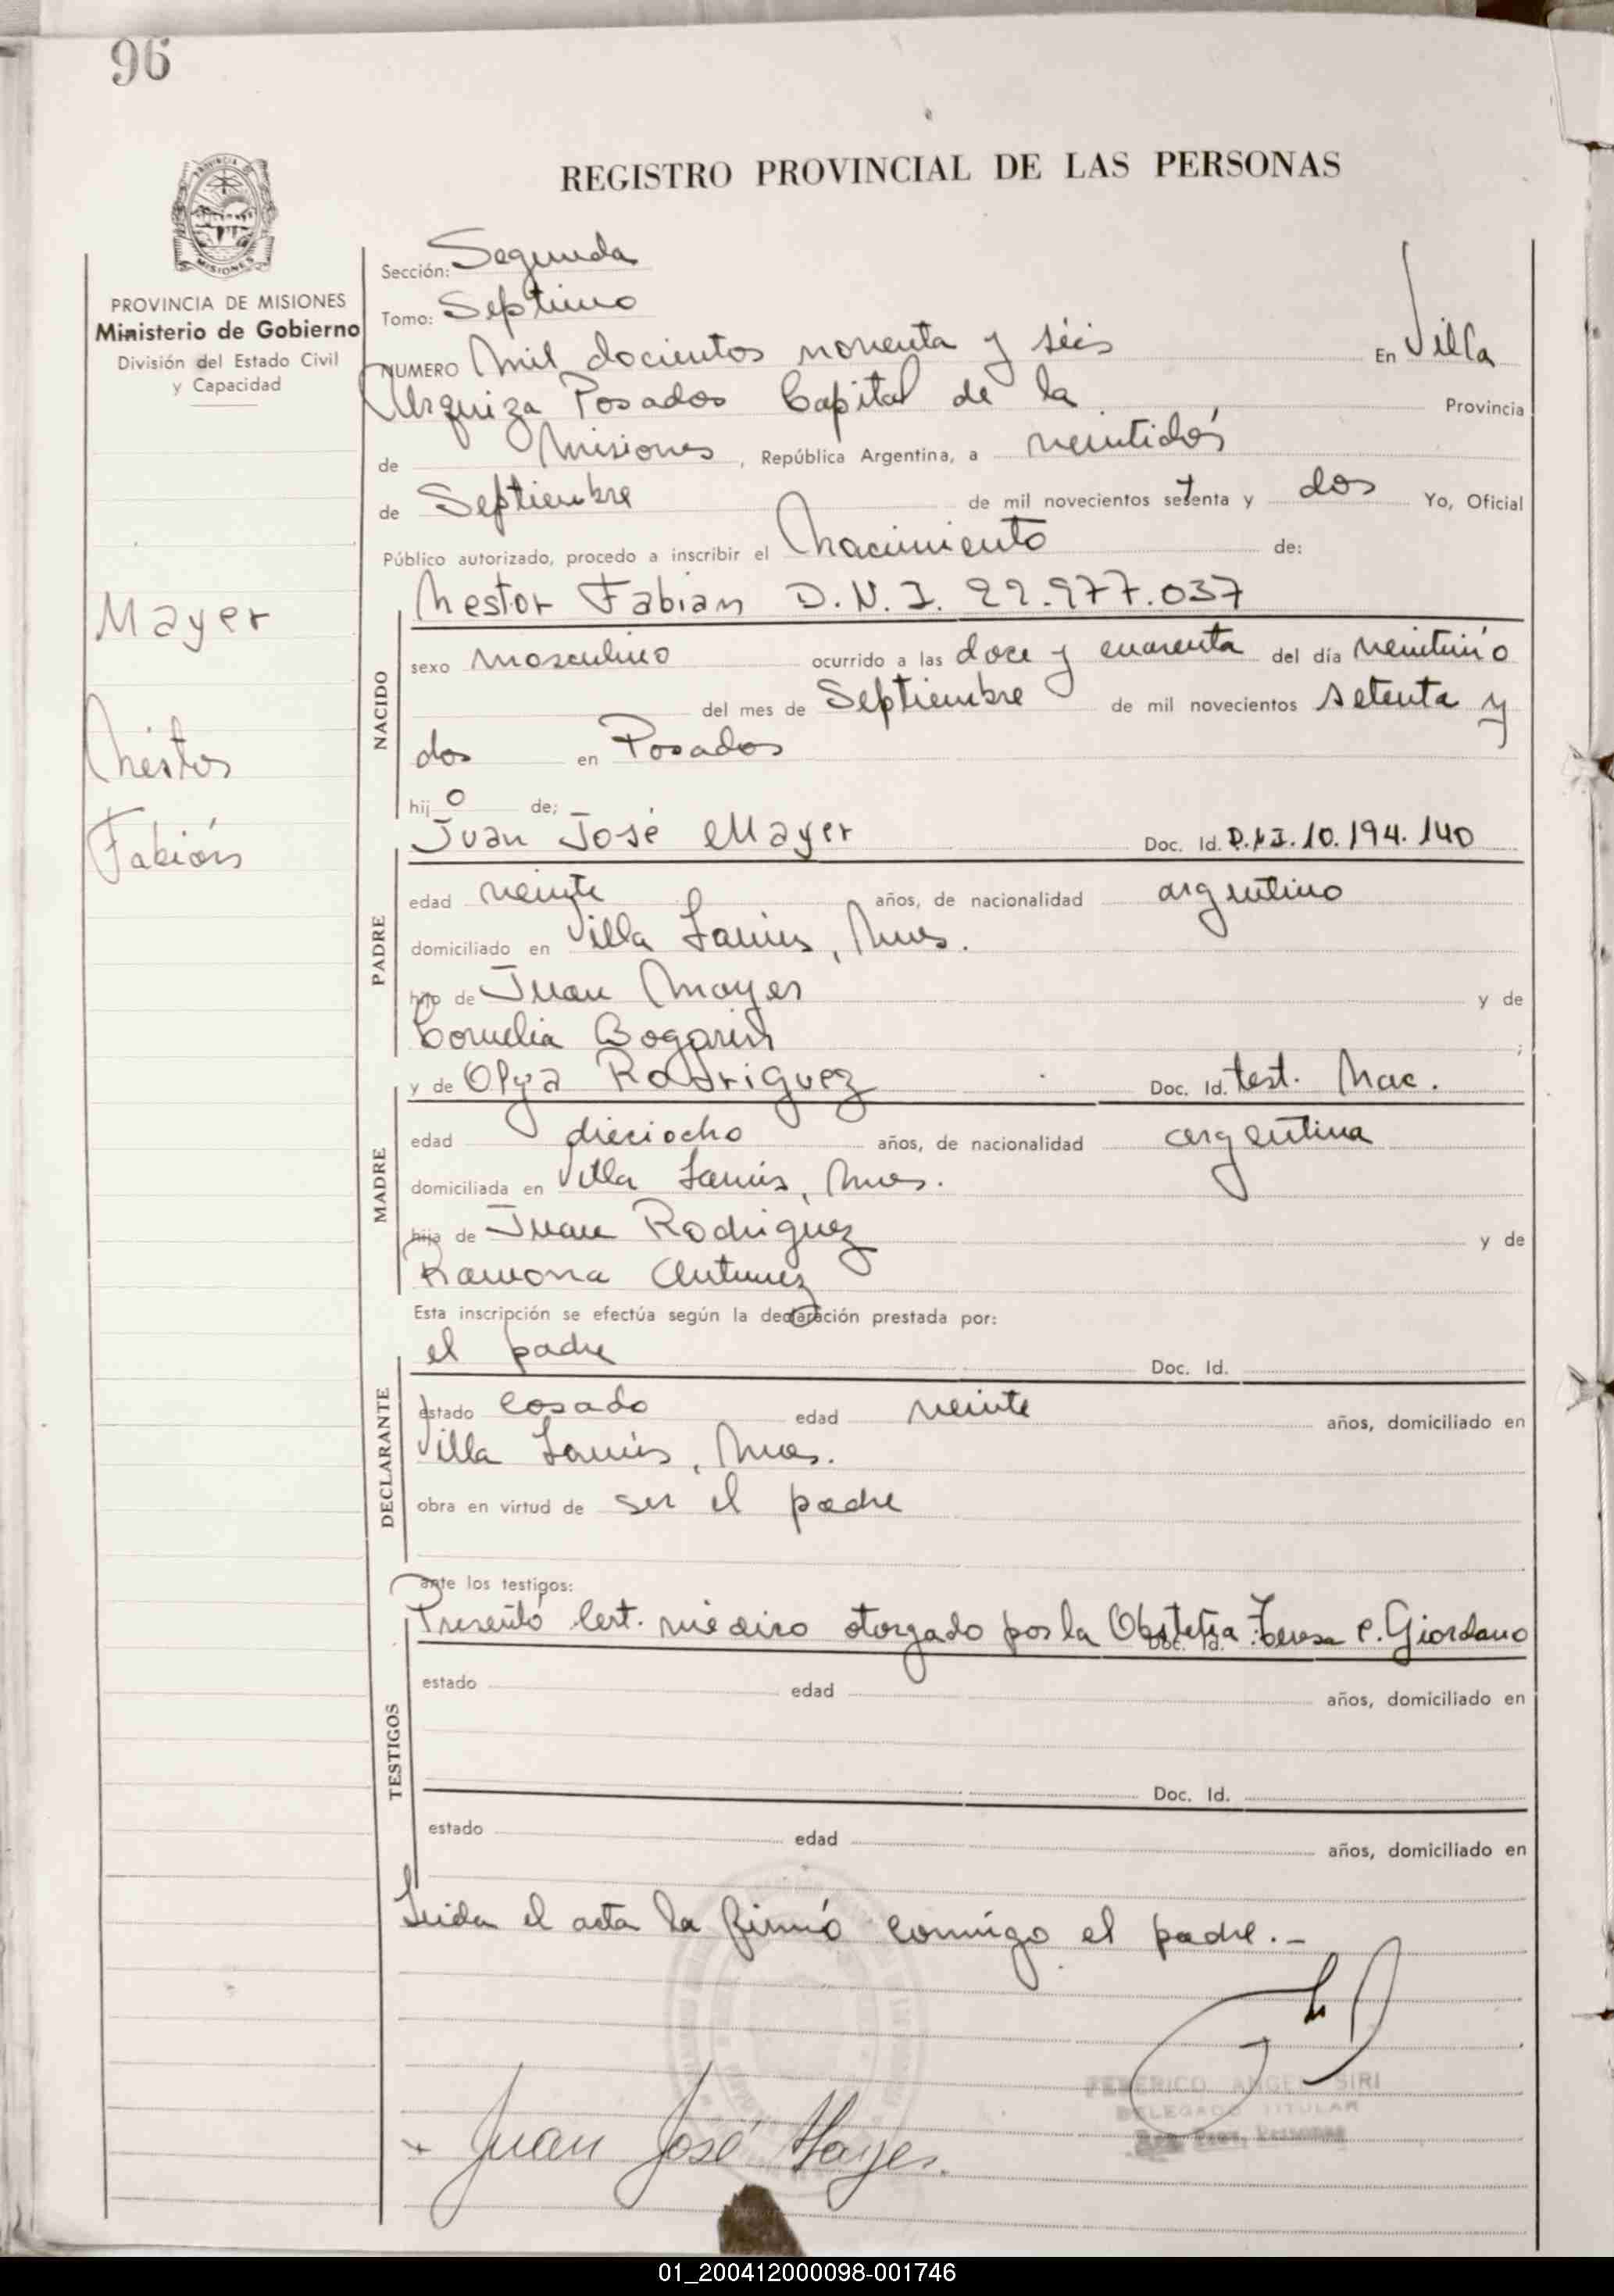 96
PROVINCIA
MISIONES
PROVINCIA DE MISIONES
Ministerio de Gobierno
División del Estado Civil
y Capacidad
Mayer
Néstor
Fabián
REGISTRO PROVINCIAL DE LAS PERSONAS
Sección: Segunda
Tomo: Septimo
NUMERO Mil docientos noventa y séis En Villa
Urquiza Posadas Capital de la Provincia
de Misiones, República Argentina, a veintidós
de Septiembre de mil novecientos setenta y dos Yo, Oficial
Público autorizado, procedo a inscribir el Nacimiento de:
Nestor Fabian D.N.I. 22.977.037
NACIDO
sexo masculino ocurrido a las doce y cuarenta del día veintiúno
del mes de Septiembre de mil novecientos setenta y
dos en Posadas
hijo de;
Juan José Mayer Doc. Id. D.N.I. 10.194.140
PADRE
edad veinte años, de nacionalidad argentino
domiciliado en Villa Lanús, Mnes.
hijo de Juan Mayer y de
Cornelia Bogarin ;
y de Olga Rodriguez Doc. Id. test. Nac.
MADRE
edad dieciocho años, de nacionalidad argentina
domiciliada en Villa Lanús, Mnes.
hija de Juan Rodriguez y de
Ramona Antunez
Esta inscripción se efectúa según la declaración prestada por:
el padre Doc. Id.
DECLARANTE
estado casado edad veinte años, domiciliado en
Villa Lanús, Mnes.
obra en virtud de ser el padre
ante los testigos:
Presentó Cert. médico otorgado por la Obstetra Doc. Id. Teresa C. Giordano
TESTIGOS
estado edad años, domiciliado en
Doc. Id.
estado edad años, domiciliado en
Leida el acta la firmó conmigo el padre.-
FEDERICO ANGEL SIRI
DELEGADO TITULAR
Reg. Prov. Personas
Juan José Mayer.
01_200412000098-001746